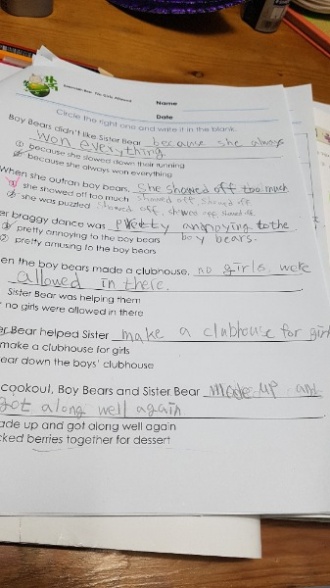 Name
Date
Circle the right one and write it in the blank.
Boy Bears didn't like Sister Bear because she always
won everything
① because she slowed down their running
② because she always won everything
When she outran boy bears, She showed off too much
① she showed off too much showed off, showed off
② she was puzzled showed off,
er braggy dance was pretty annoying to the
① pretty annoying to the boy bears boy bears.
② pretty amusing to the boy bears
en the boy bears made a clubhouse, no girls were
allowed in there.
Sister Bear was helping them
no girls were allowed in there
er Bear helped Sister make a clubhouse for girl
make a clubhouse for girls
ear down the boys' clubhouse
cookout, Boy Bears and Sister Bear made up and
got along well again
ade up and got along well again
cked berries together for dessert